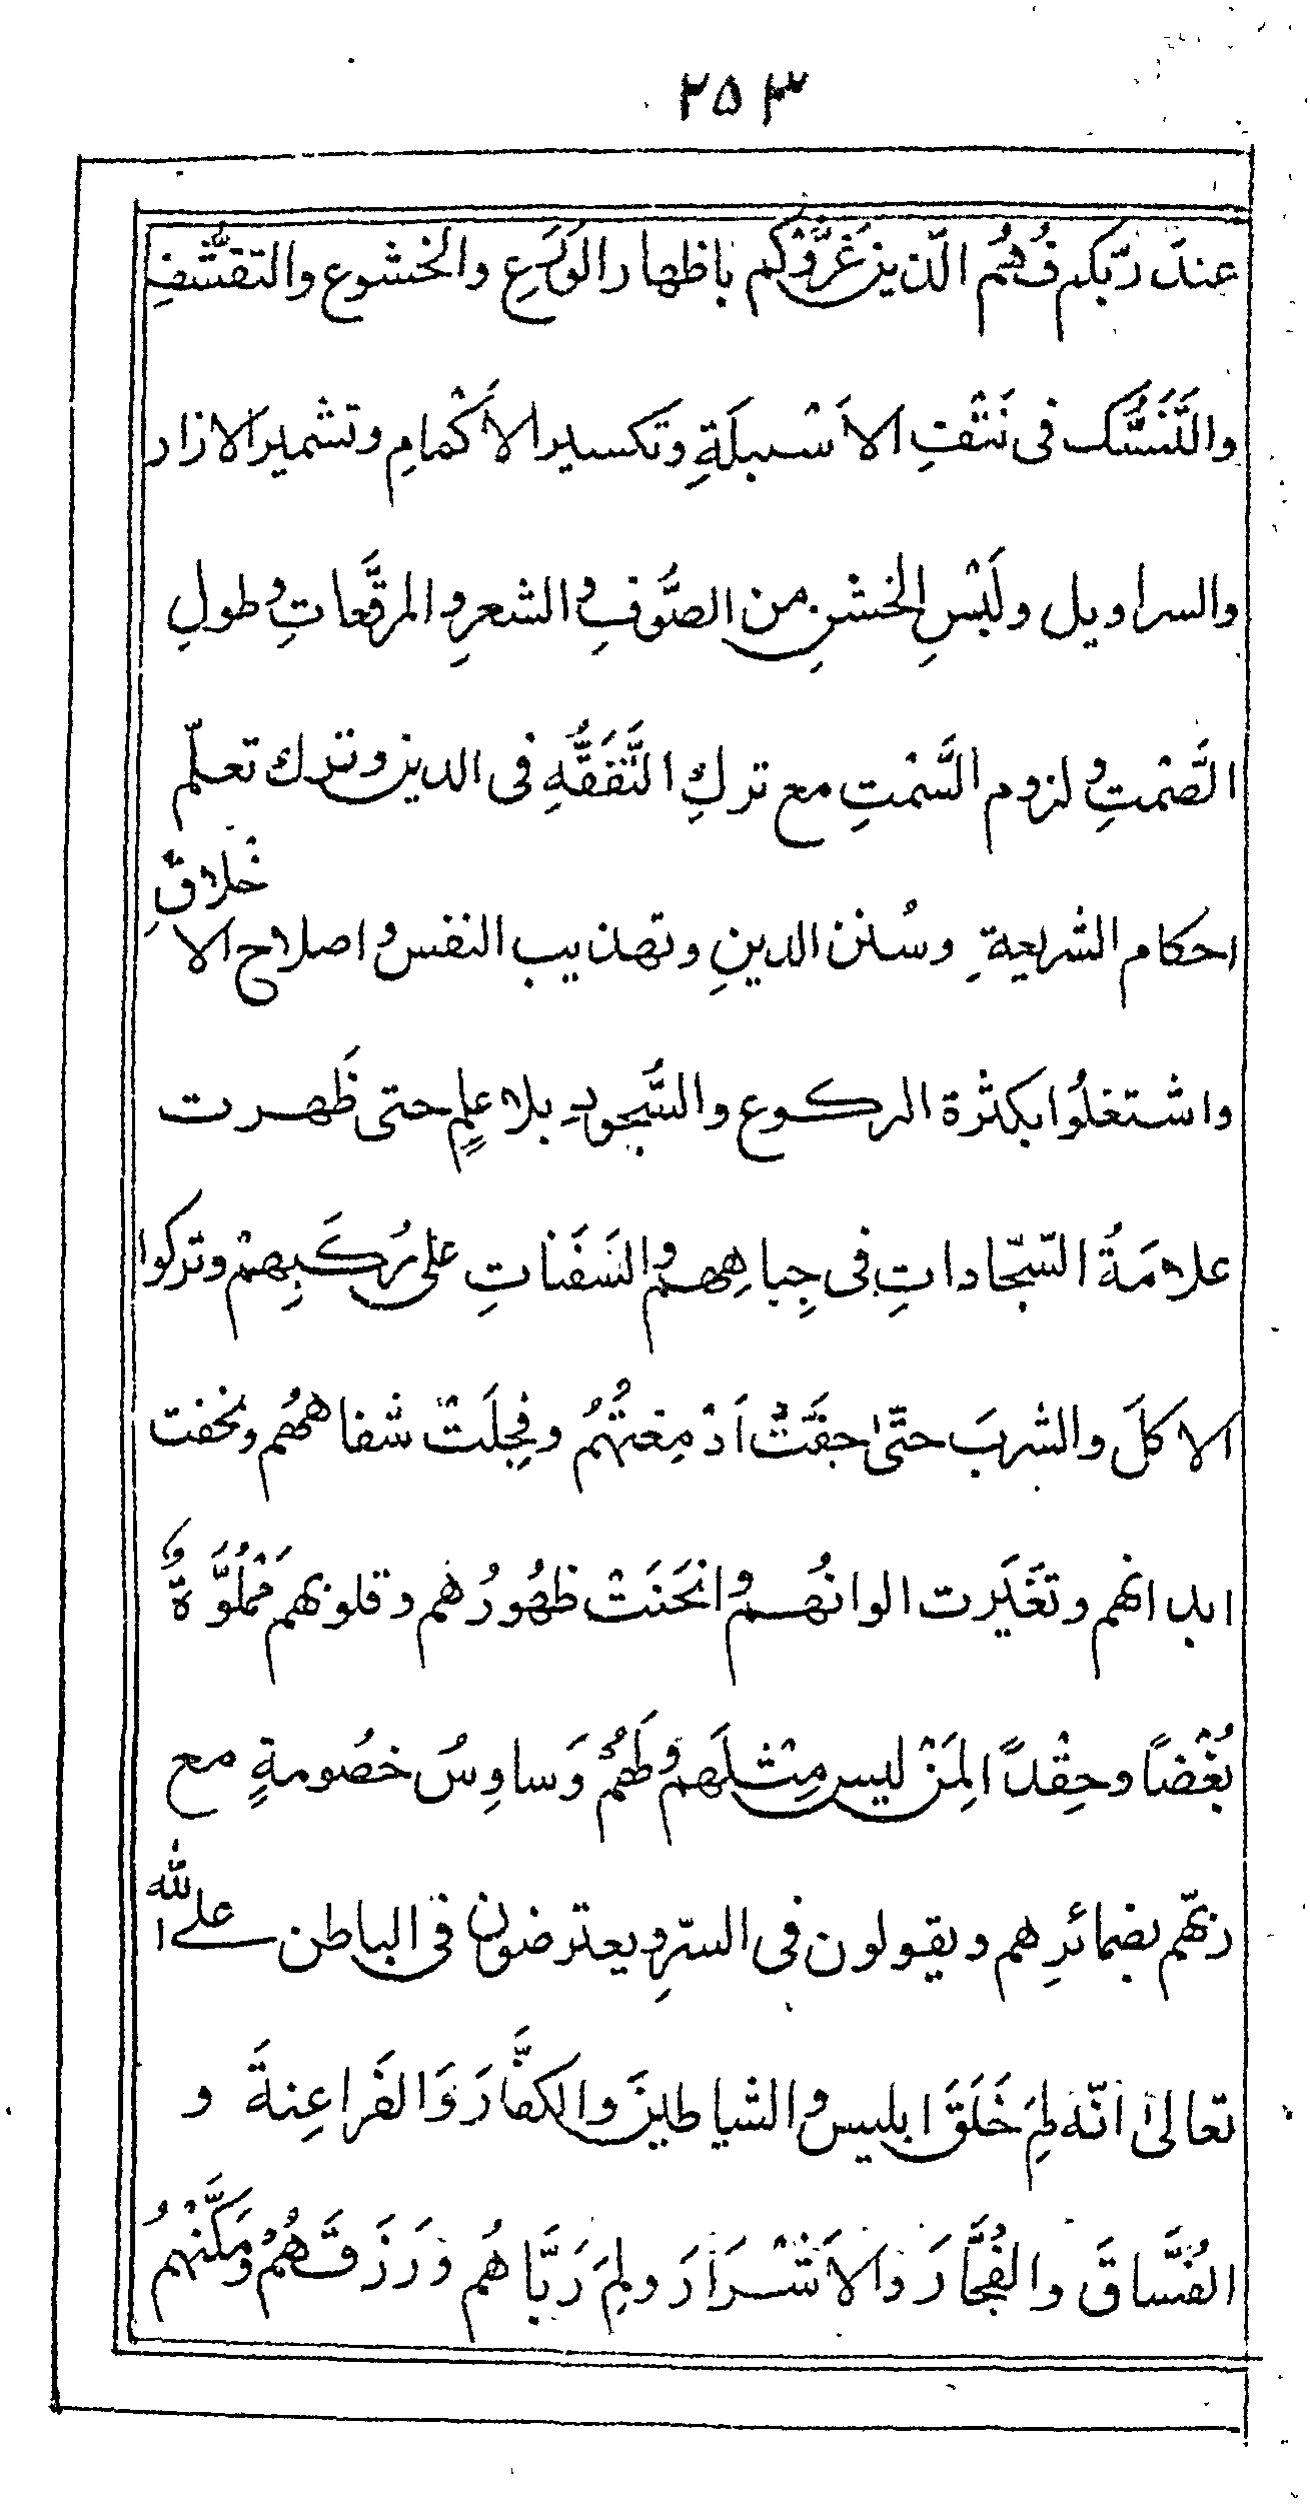 ٢٥٣
عندَ ربّكم فهُم الّذين غَرُّوْكم باظهار الوَرَعِ والخشوع والتقشّفِ
والتَّنَسُّك فى نَتْفِ الاَسْبلَةِ وتكسير الاَكْمامِ وتشمير الازار
والسراويل ولَبْسِ الخشنِ من الصُّوفِ والشعرِ والمرقَّعاتِ وطولِ
الصَّمْتِ ولزوم السَّمْتِ مع تركِ التَّفَقُّهِ فى الدين وترك تعلّم
احكام الشريعةِ وسُنن الدينِ وتهذيب النفس واصلاح الاخْلاقِ
واشتغلُوا بكثرة الركوع والسُّجودِ بلا علمٍ حتى ظَهرت
علامَةُ السّجّاداتِ فى جِباهِهم والثَفَناتِ على رُكَبِهمْ وتركوا
الاكلَ والشربَ حتّىٰ جفَّتْ اَدْمِغتهُمُ وفجِلَتْ شفاههُم ونحفت
ابدانهم وتغَيَرت الوانهُم وانحَنَتْ ظهُورُهم وقلوبهم مَمْلُوَّةٌ
بُغْضاً وحِقْداً لِمَنْ ليس مِثْلَهم ولَهُمْ وَساوِسُ خصُومةٍ مع
ربّهم بضمائرِهم ويقولون فى السّرِ ويعترضون فى الباطن على الله
تعالىٰ انّه لِمَ خَلَقَ ابليس والشياطينَ والكفَّارَ وَالفَراعِنةَ و
الفُسَّاقَ والفُجَّارَ وَالاَشْرَارَ ولِمَ رَبَّاهُم ورَزَقَهُمْ ومَكَّنَهُمْ